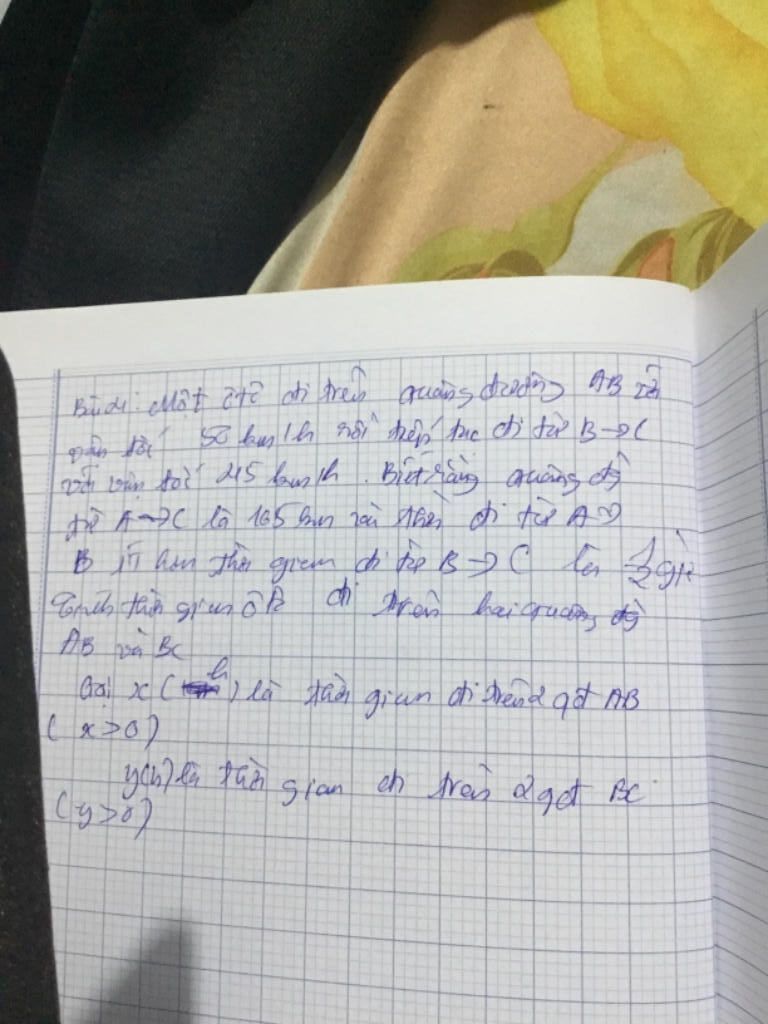 Bài: Một ôtô đi trên quãng đường AB với
vận tốc 50 km/h rồi tiếp tục đi từ B→C
với vận tốc 45 km/h. Biết rằng quãng đg
từ A→C là 165 km và thời đi từ A→
B ít hơn thời gian đi từ B→C là 1/2 giờ
Tính thời gian ô tô đi trên hai quãng đg
AB và BC
Gọi x (h) là thời gian đi trên qđ AB
(x>0)
y(h) là thời gian đi trên qđ BC
(y>0)